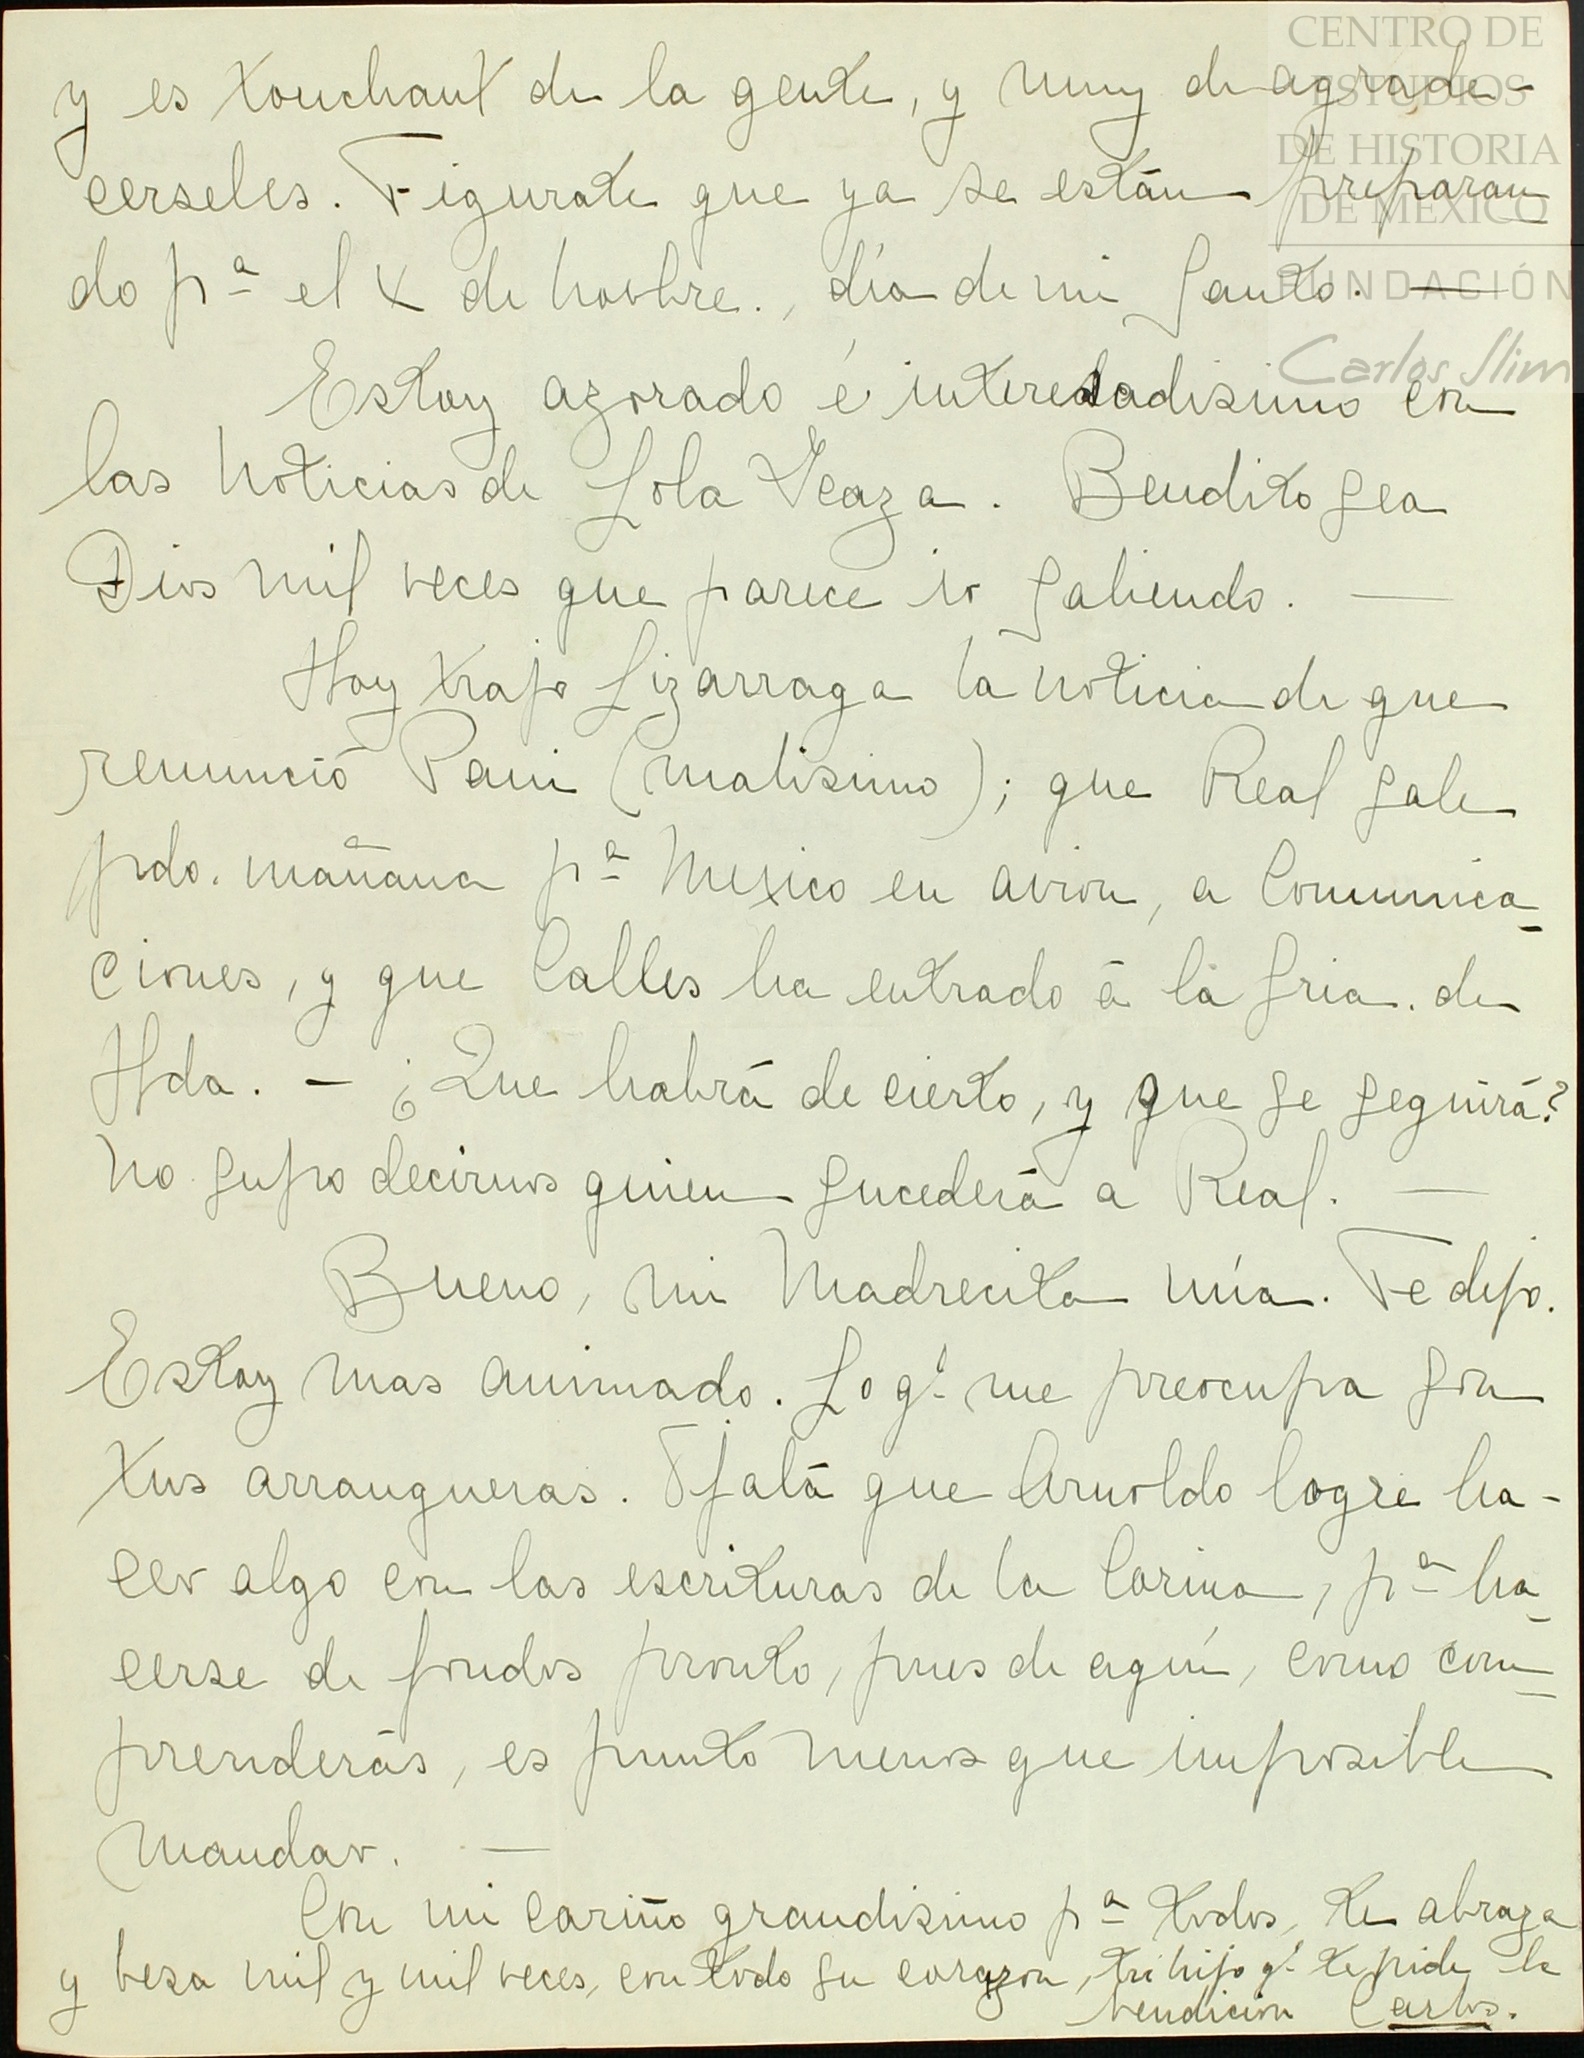 CENTRO DE
ESTUDIOS
DE HISTORIA
DE MEXICO
FUNDACIÓN
Carlos Slim
y es touchant de la gente, y muy de agrade-
cerseles. Figurate que ya se están preparan
do pª el 4 de novbre., día de mi Santo. —
Estoy azorado é interesadisimo con
las noticias de Lola Icaza. Bendito sea
Dios mil veces que parece ir saliendo. —
Hoy trajo Lizarraga la noticia de que
renunció Pani (malisimo); que Real sale
pdo. mañana pª Mexico en avion, a Comunica-
ciones, y que Calles ha entrado á la Sria. de
Hda. - ¿Que habrá de cierto, y que se seguirá?
No supo decirnos quien sucederá a Real. —
Bueno, mi Madrecita mía. Te dejo.
Estoy mas animado. Lo q.' me preocupa son
tus arranqueras. Ojalá que Arnoldo logre ha-
cer algo con las escrituras de la Corina, pª ha-
cerse de fondos pronto, pues de aquí, como com-
prenderás, es punto menos que imposible
mandar. —
Con mi cariño grandisimo pª todos, te abraza
y besa mil y mil veces, con todo su corazon, tu hijo q.' te pide la
bendicion Carlos.